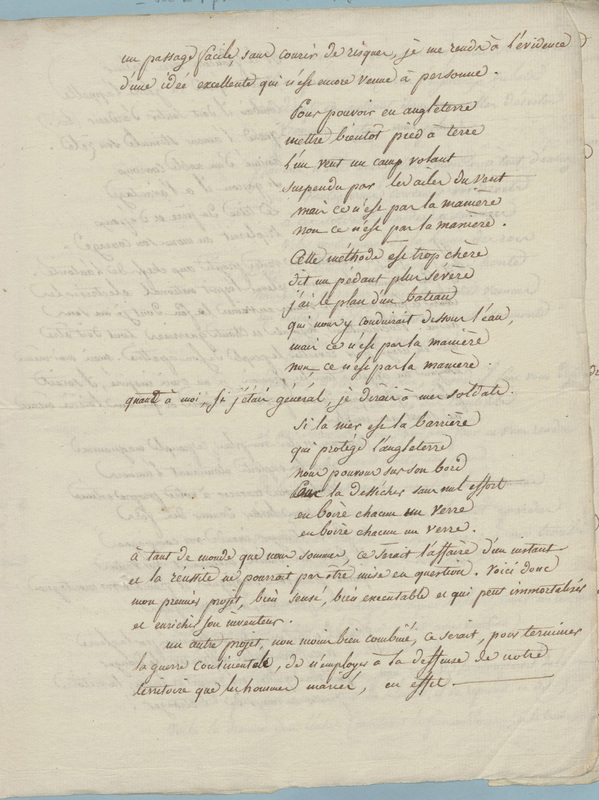 un passage facile, sans courir de risquer, je me rends à l'évidence
d'une idée excellente qui n'est encore venue à personne.
Pour pouvoir en angleterre
mettre bientot pied à terre
l'un veut un camp volant
suspendu par les ailes du vent
mais ce n'est pas la manière
non ce n'est pas la manière.
Cette méthode est trop chère
dit un pédant plus sévère
j'ai le plan d'un bateau
qui nous y conduirait dessous l'eau,
mais ce n'est pas la manière
non ce n'est pas la manière.
quant à moi, si j'étais général, je dirais à mes soldats.
si la mer est la barrière
qui protége l'angleterre
nous pouvons sur son bord
la dessécher sans nul effort
en boire chacun un verre
en boire chacun un verre.
à tant de monde que nous sommes, ce serait l'affaire d'un instant
et la réussite ne pourrait pas être mise en question. Voici donc
mon premier projet, bien sensé, bien executable et qui peut immortaliser
et enrichir son inventeur.
un autre projet, non moins bien combiné, ce serait, pour terminer
la guerre continentale, de n'employer à la deffense de notre
territoire que les hommes mariés, en effet